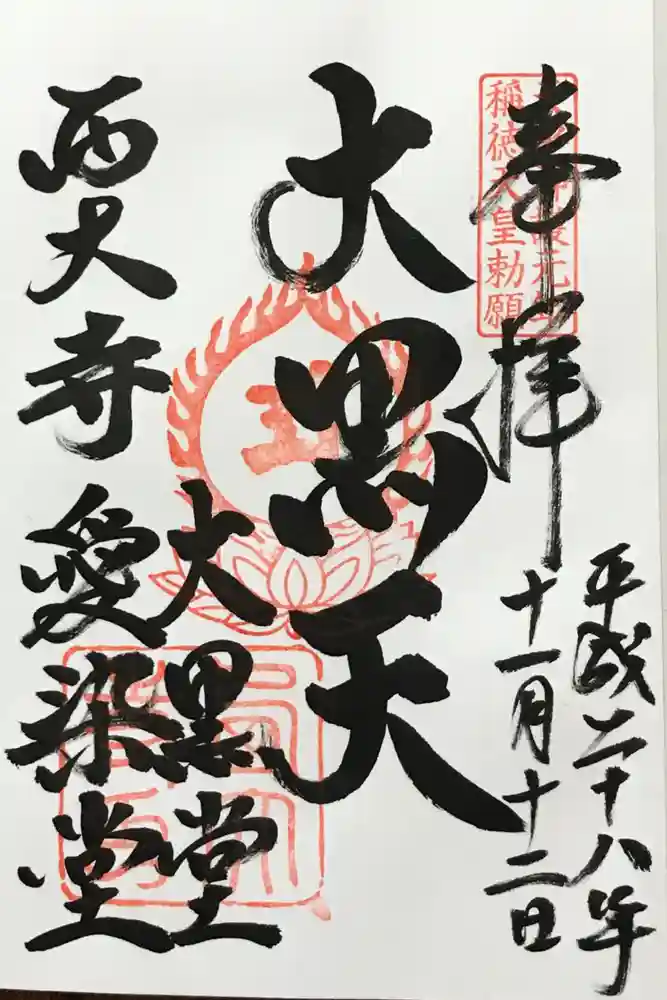 奉拝
稱徳天皇勅願
平成二十八年
十一月十二日
大黒天
大黒堂
西大寺愛染堂